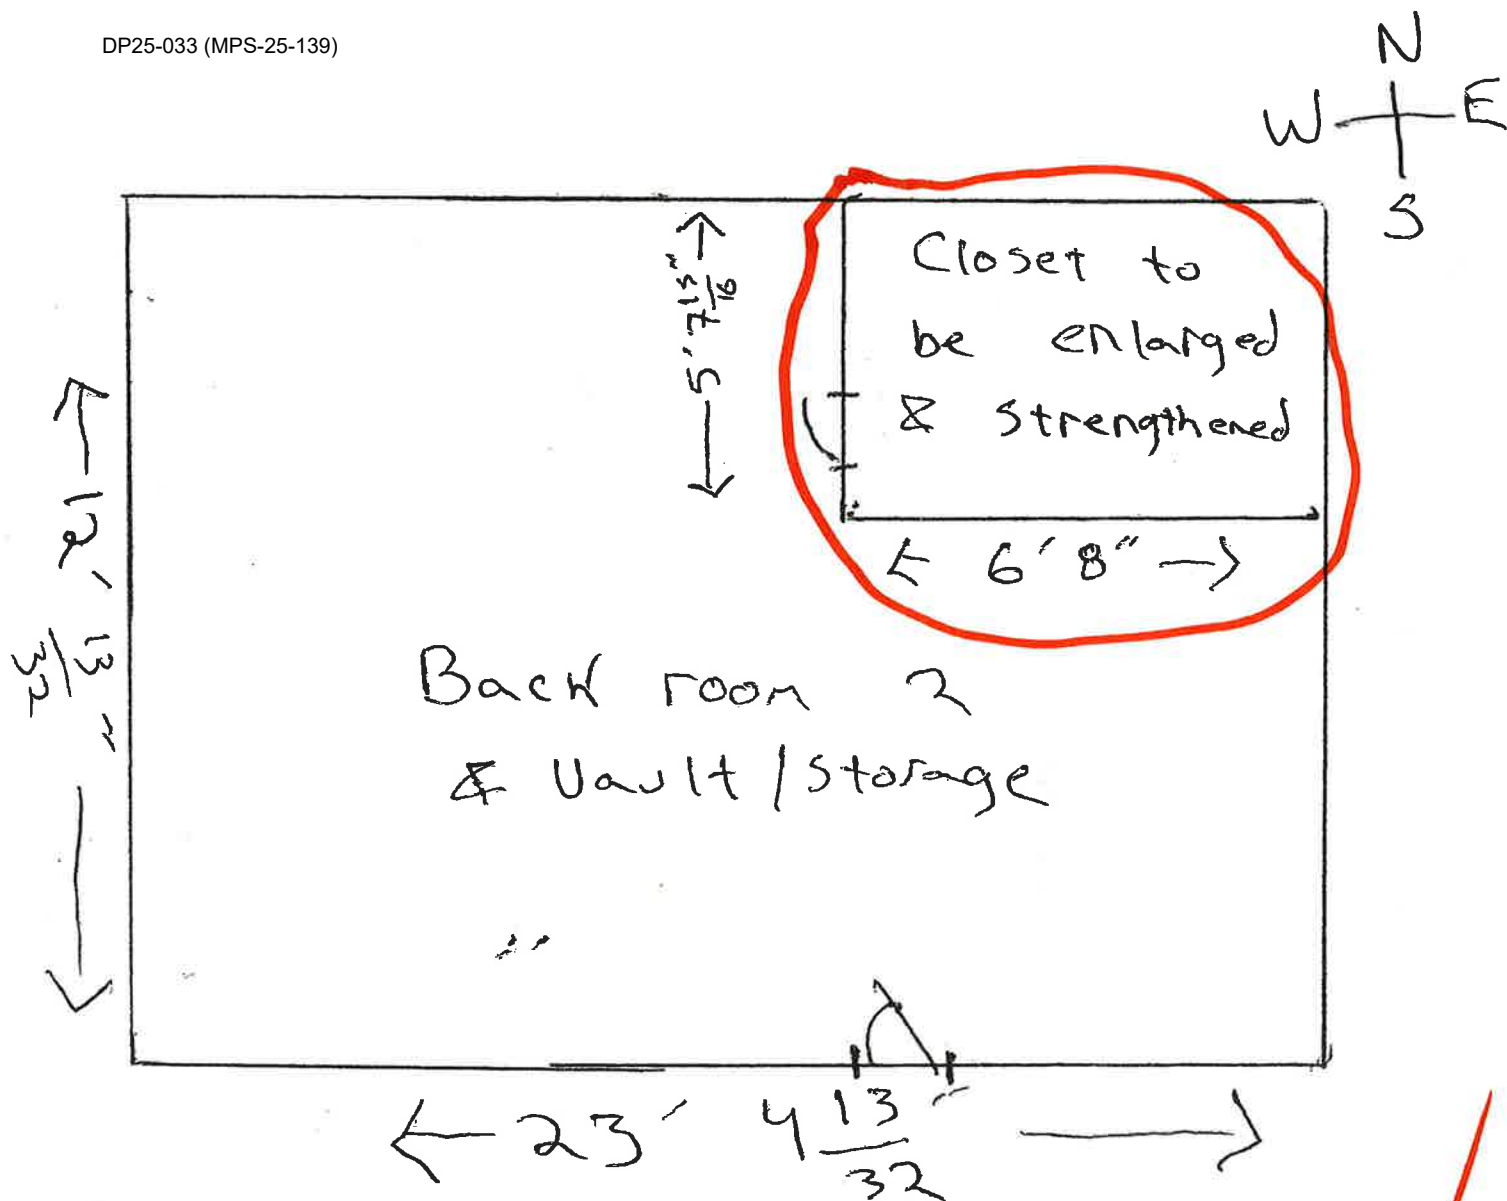 DP25-033 (MPS-25-139)
N
W E
S
Closet to
be enlarged
& strengthened
5' 7 15/16"
6' 8"
12' 13/32"
Back room 2
& Vault/Storage
23' 4 13/32"